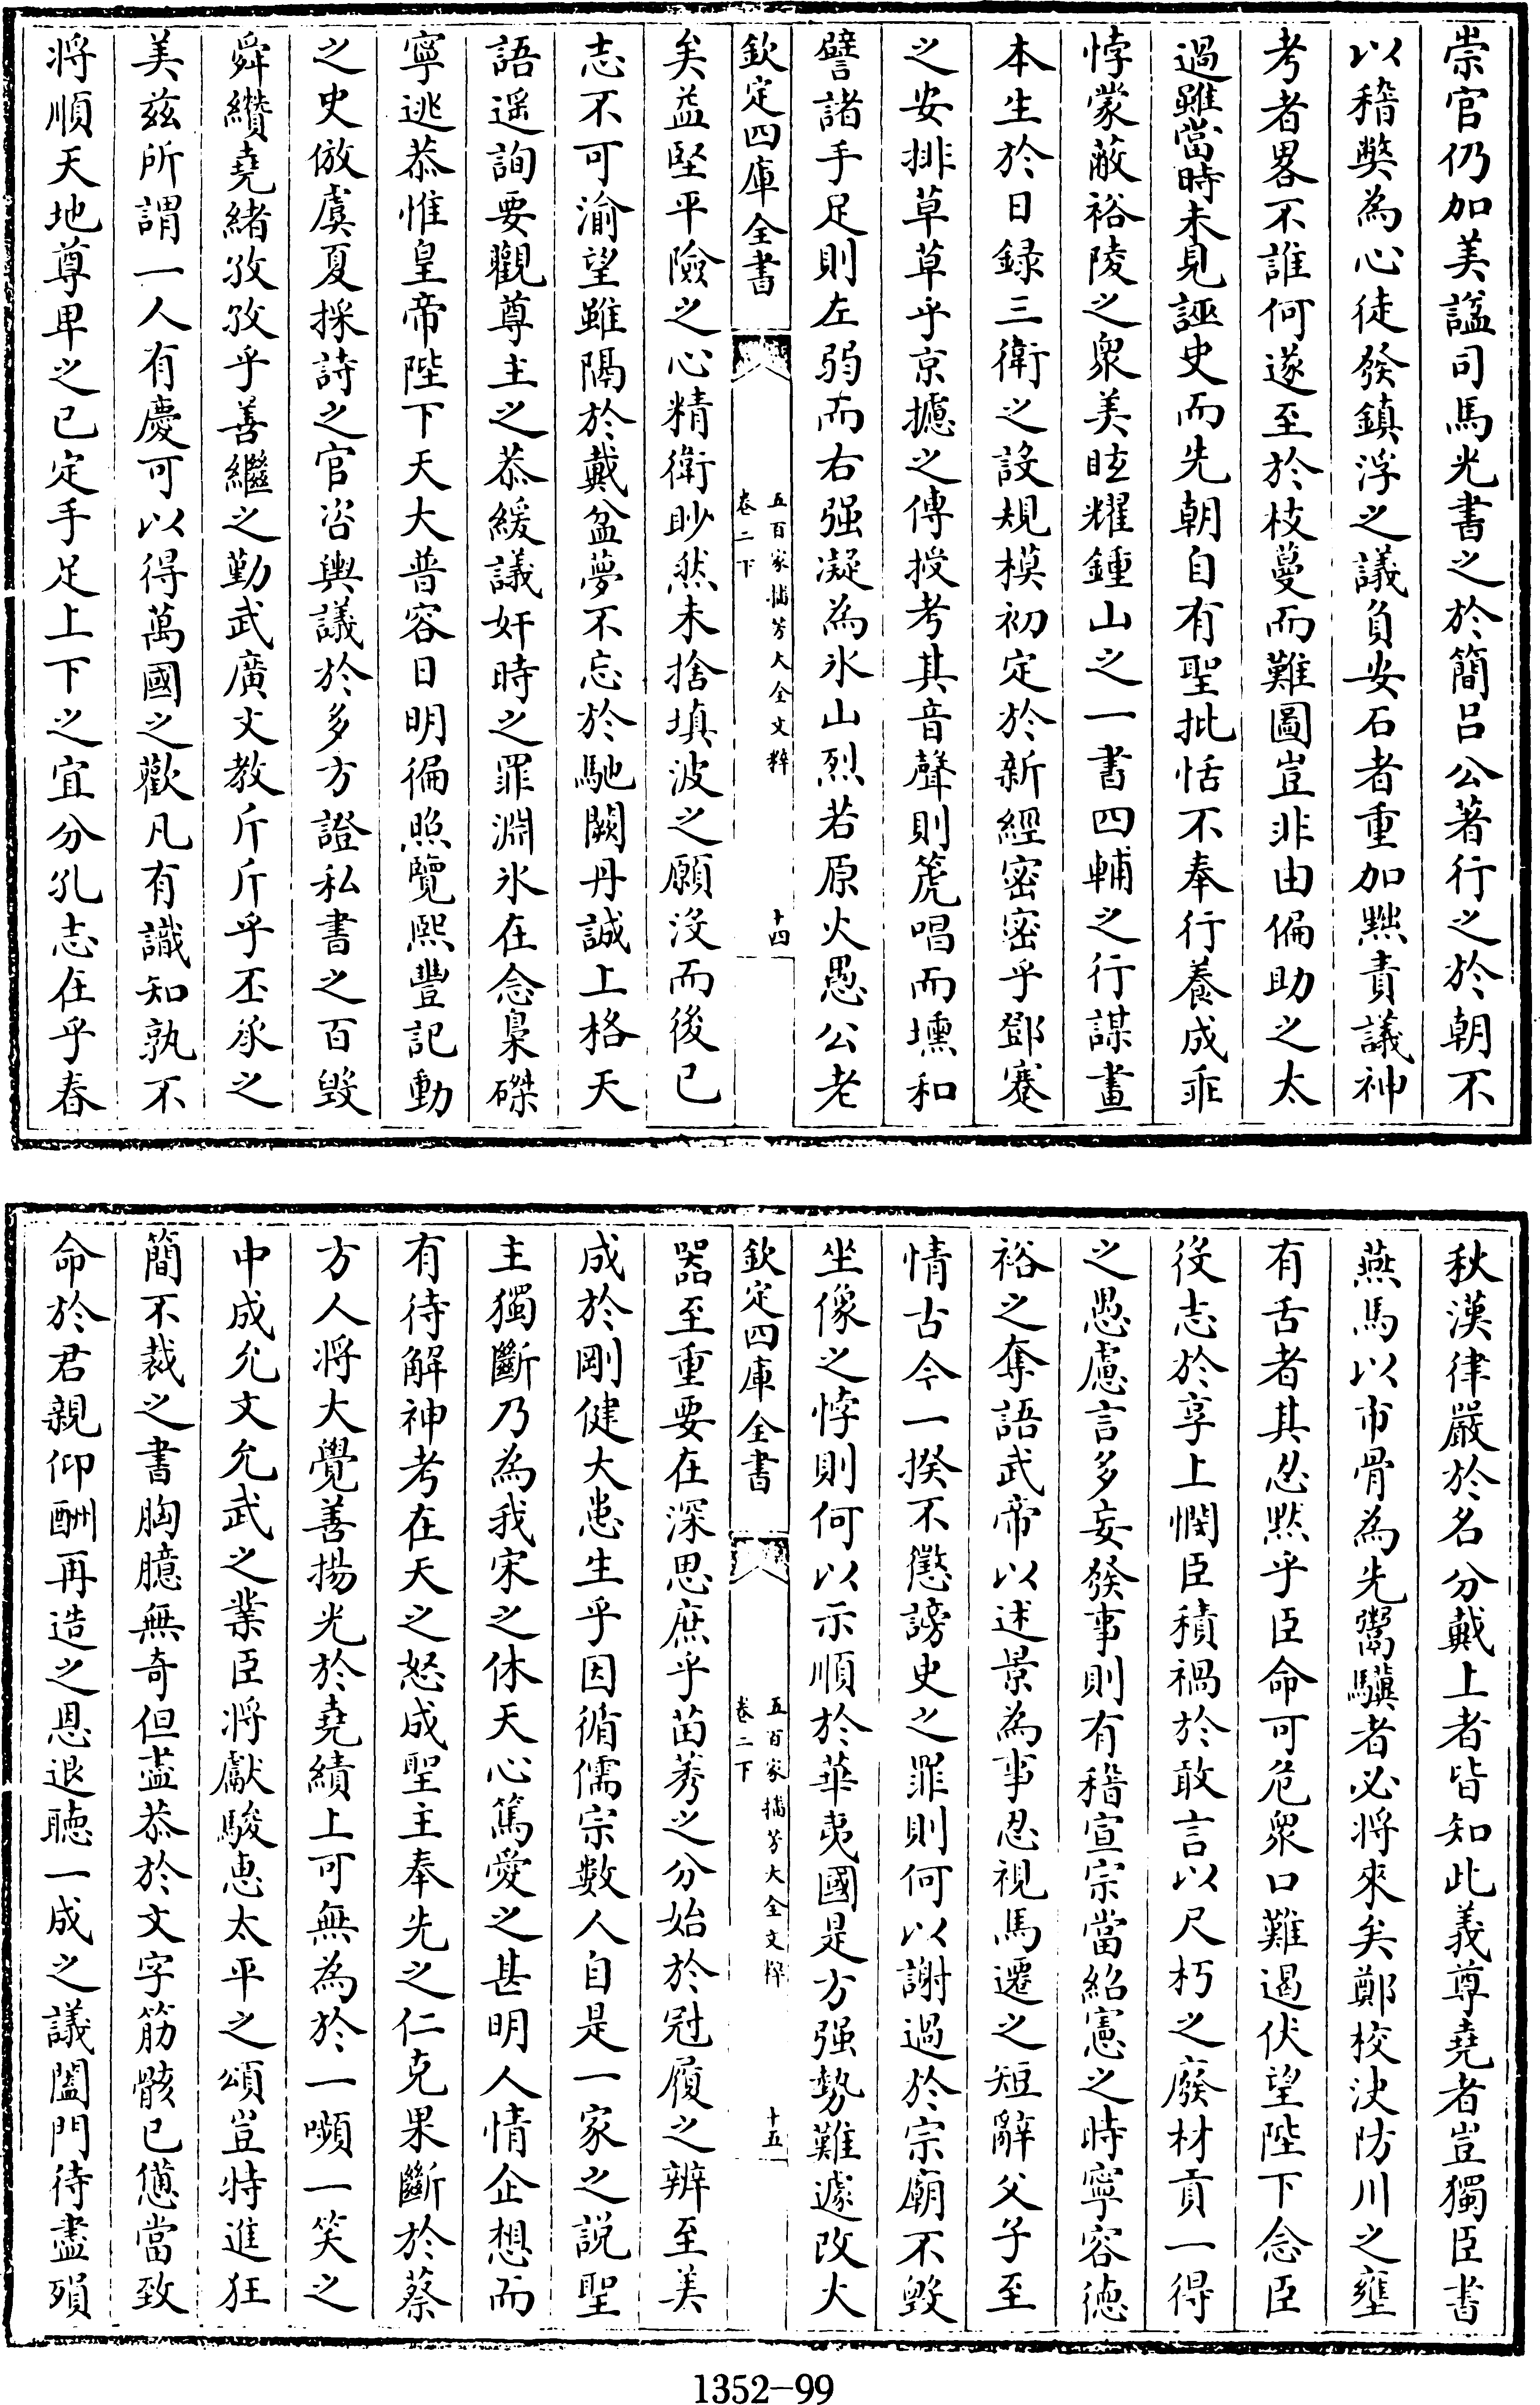 崇官仍加美諡司馬光書之於簡吕公著行之於朝不
以稽獘為心徒發鎮浮之議負安石者重加黙責議神
考者畧不誰何遂至於枝蔓而難圖豈非由偏助之太
過雖當時未見誣史而先朝自有聖批恬不奉行養成乖
悖蒙蔽裕陵之衆美眩耀鍾山之一書四輔之行謀畫
本生於日録三衛之設規模初定於新經密密乎鄧蹇
之安排草草乎京攄之傳授考其音聲則箎唱而壎和
譬諸手足則左弱而右强凝為氷山烈若原火愚公老
欽定四庫全書
五百家播芳大全文粹
卷二下
十四
矣益堅平險之心精衛眇然未捨填波之願没而後已
志不可渝望雖隔於戴盆夢不忘於馳闕丹誠上格天
語遥詢要觀尊主之恭緩議奸時之罪淵氷在念梟磔
寧逃恭惟皇帝陛下天大普容日明徧照覽熙豐記動
之史倣虞夏採詩之官咨輿議於多方證私書之百毁
舜纘堯緒孜孜乎善繼之勤武廣文教斤斤乎丕承之
美兹所謂一人有慶可以得萬國之歡凡有識知孰不
将順天地尊卑之已定手足上下之宜分孔志在乎春
秋漢律嚴於名分戴上者皆知此義尊堯者豈獨臣書
燕馬以市骨為先鬻驥者必将來矣鄭校决防川之壅
有舌者其忍黙乎臣命可危衆口難遏伏望陛下念臣
役志於享上憫臣積禍於敢言以尺朽之廢材貢一得
之愚慮言多妄發事則有稽宣宗當紹憲之時寧容徳
裕之奪語武帝以述景為事忍視馬遷之短辭父子至
情古今一揆不懲謗史之罪則何以謝過於宗廟不毀
坐像之悖則何以示順於華夷國是方强勢難遽改大
欽定四庫全書
五百家播芳大全文粹
卷二下
十五
器至重要在深思庶乎苗莠之分始於冠履之辨至美
成於剛健大患生乎因循儒宗數人自是一家之説聖
主獨斷乃為我宋之休天心篤愛之甚明人情企想而
有待解神考在天之怒成聖主奉先之仁克果斷於蔡
方人将大覺善揚光於堯績上可無為於一嚬一笑之
中成允文允武之業臣将獻駿惠太平之頌豈特進狂
簡不裁之書胸臆無奇但盡恭於文字筋骸已憊當致
命於君親仰酬再造之恩退聴一成之議闔門待盡殞